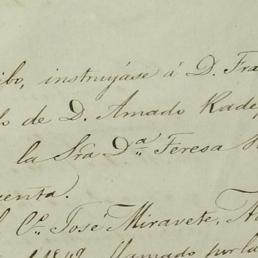 ibo, instruyase á D. Fra
o de D. Amado Rade
la Sra Dª Teresa
uenta.
Cº José Miravete,
llamado por la